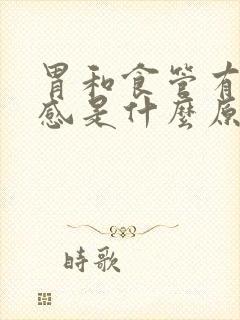 胃和食管有
感是什麼原
時歌